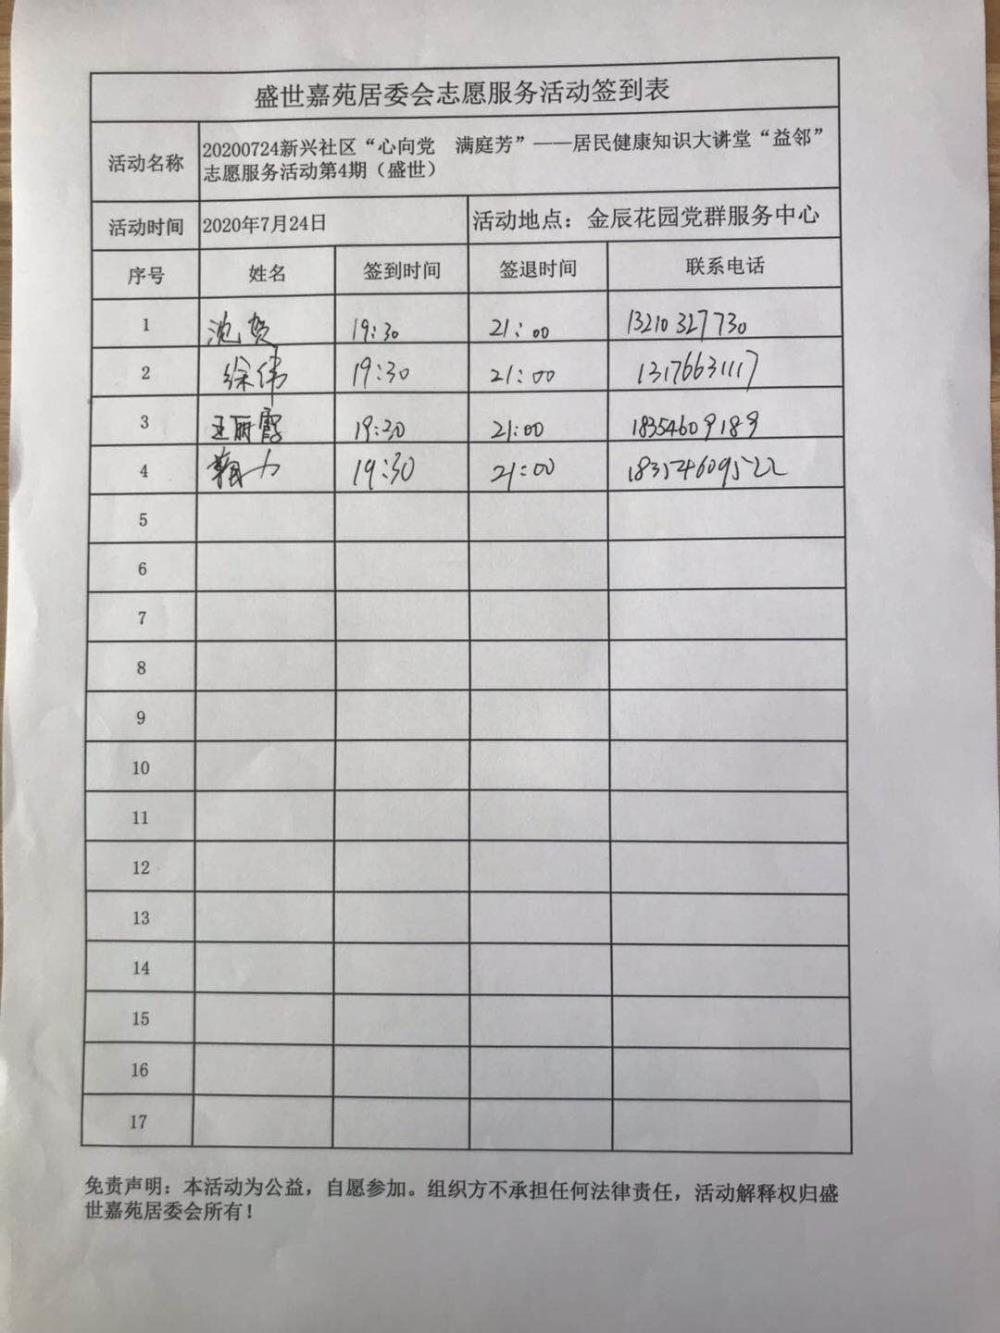 盛世嘉苑居委会志愿服务活动签到表
活动名称 20200724新兴社区“心向党 满庭芳”——居民健康知识大讲堂“益邻”
志愿服务活动第4期（盛世）
活动时间 2020年7月24日 活动地点：金辰花园党群服务中心
序号 姓名 签到时间 签退时间 联系电话
1 沈贺 19:30 21:00 13210327730
2 徐伟 19:30 21:00 13176631117
3 王丽霞 19:30 21:00 18354609189
4 力 19:30 21:00 18354609522
5
6
7
8
9
10
11
12
13
14
15
16
17
免责声明：本活动为公益，自愿参加。组织方不承担任何法律责任，活动解释权归盛
世嘉苑居委会所有！